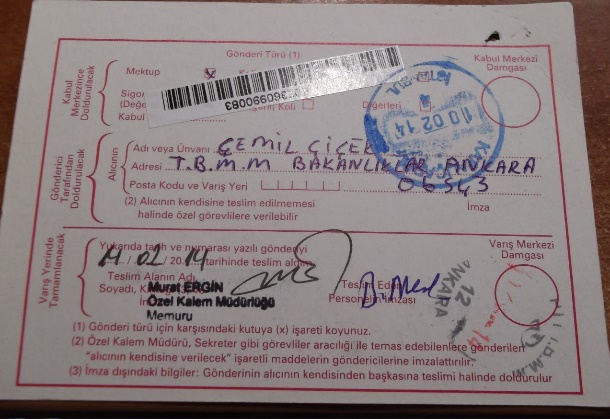 Gönderi Türü (1)
Kabul Merkezi
Damgası
Kabul
Merkezince
Doldurulacak
Mektup
Kabul
Diğerleri
10 02 14
Gönderici
Tarafından
Doldurulacak
Alıcının
Adı veya Ünvanı ÇEMİL ÇİÇEK
Adresi T.B.M.M BAKANLIKLAR ANKARA
Posta Kodu ve Varış Yeri 06543
(2) Alıcının kendisine teslim edilmemesi
halinde özel görevlilere verilebilir
İmza
Varış Yerinde
Tamamlanacak
Varış Merkezi
Damgası
Yukarıda tarih ve numarası yazılı gönderiyi
11/02/2014 tarihinde teslim aldım
Teslim Alanın Adı
Soyadı,
Murat ERGİN
Özel Kalem Müdürlüğü
Memuru
Teslim Eden
Personelin İmzası
ANKARA
12
14
T.B.M.M
(1) Gönderi türü için karşısındaki kutuya (x) işareti koyunuz.
(2) Özel Kalem Müdürü, Sekreter gibi görevliler aracılığı ile temas edebilenlere gönderilen
"alıcının kendisine verilecek" işaretli maddelerin göndericilerine imzalattırılır.
(3) İmza dışındaki bilgiler: Gönderinin alıcının kendisinden başkasına teslimi halinde doldurulur